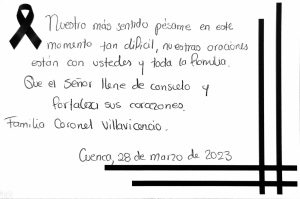 Nuestro más sentido pésame en este
momento tan difícil, nuestras oraciones
están con ustedes y toda la familia.
Que el Señor llene de consuelo y
fortaleza sus corazones.
Familia Coronel Villavicencio.
Cuenca, 28 de marzo de 2023